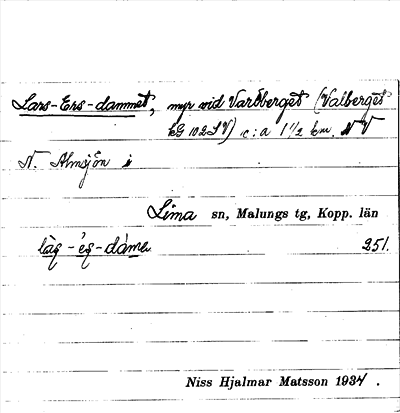 Lars-Ers-dammet, myr vid Vardberget (Valberget
EG 102 SV) c:a 1 1/2 km. NV
N. Almsjön i
Lima sn, Malungs tg, Kopp. län
251.
Niss Hjalmar Matsson 1934.